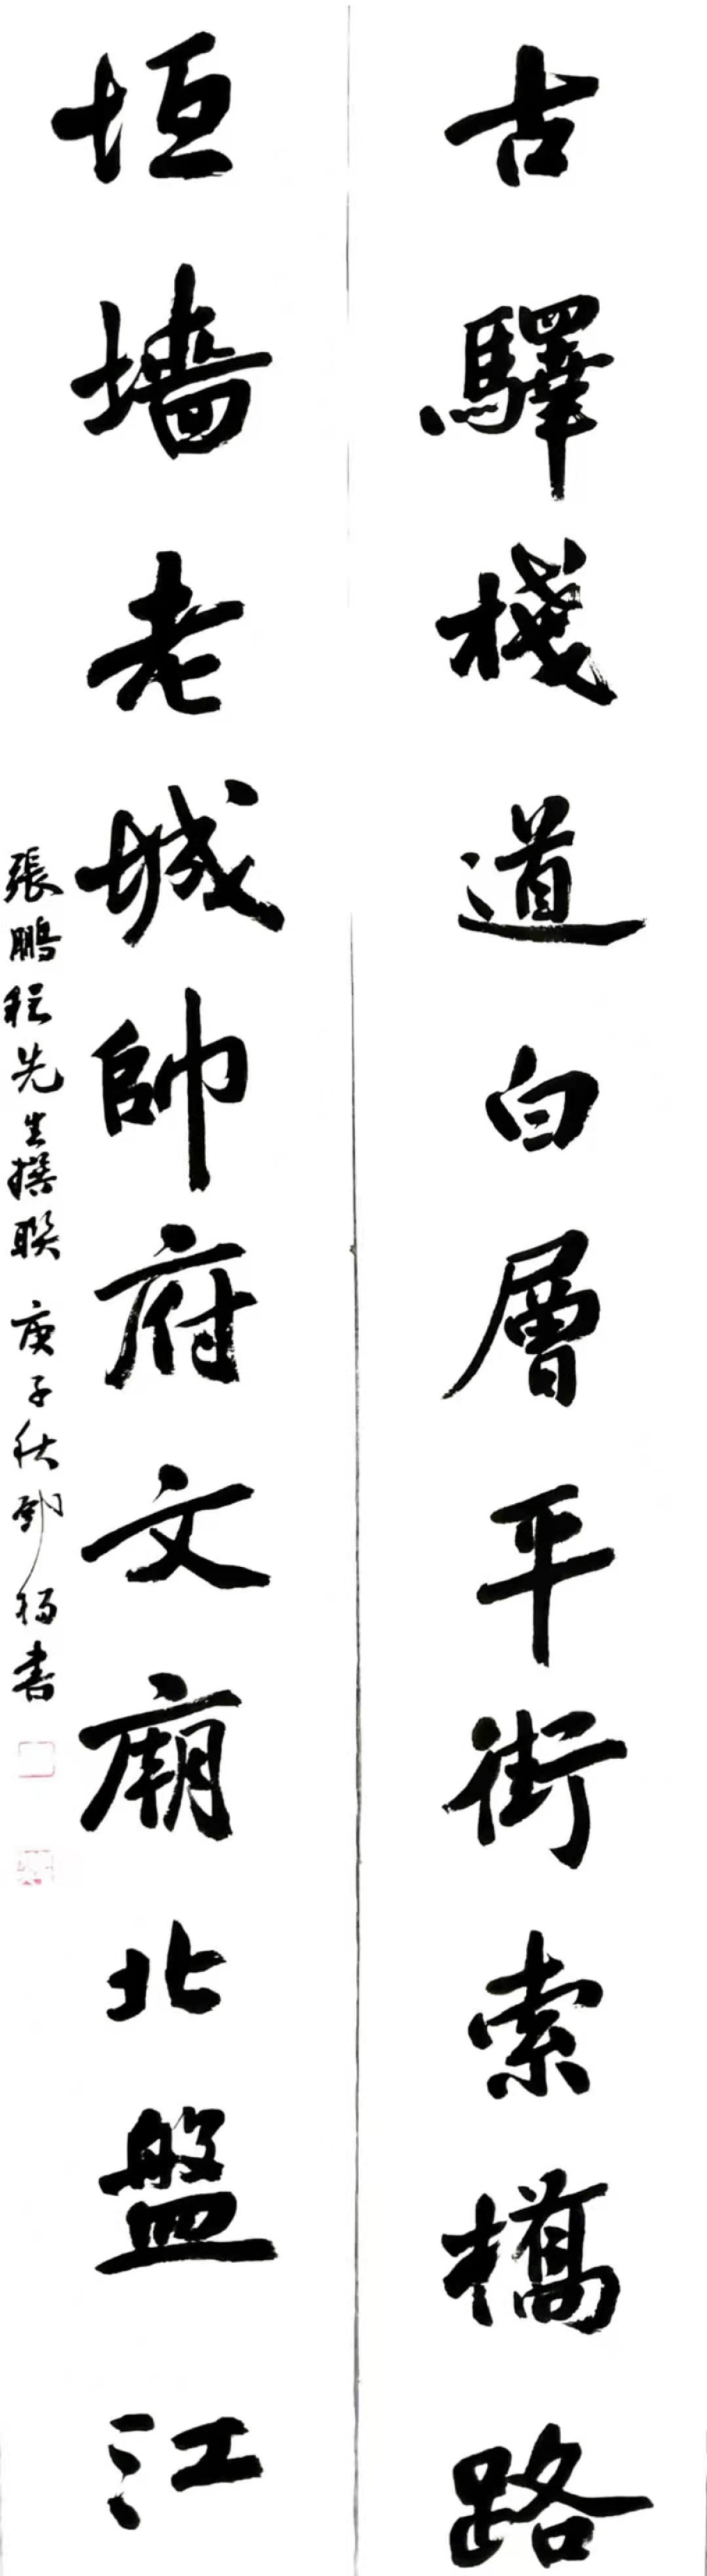 古驛棧道白層平街索橋路
垣墙老城帥府文廟北盤江
張鵬程先生撰聯 庚子秋鄧楊書